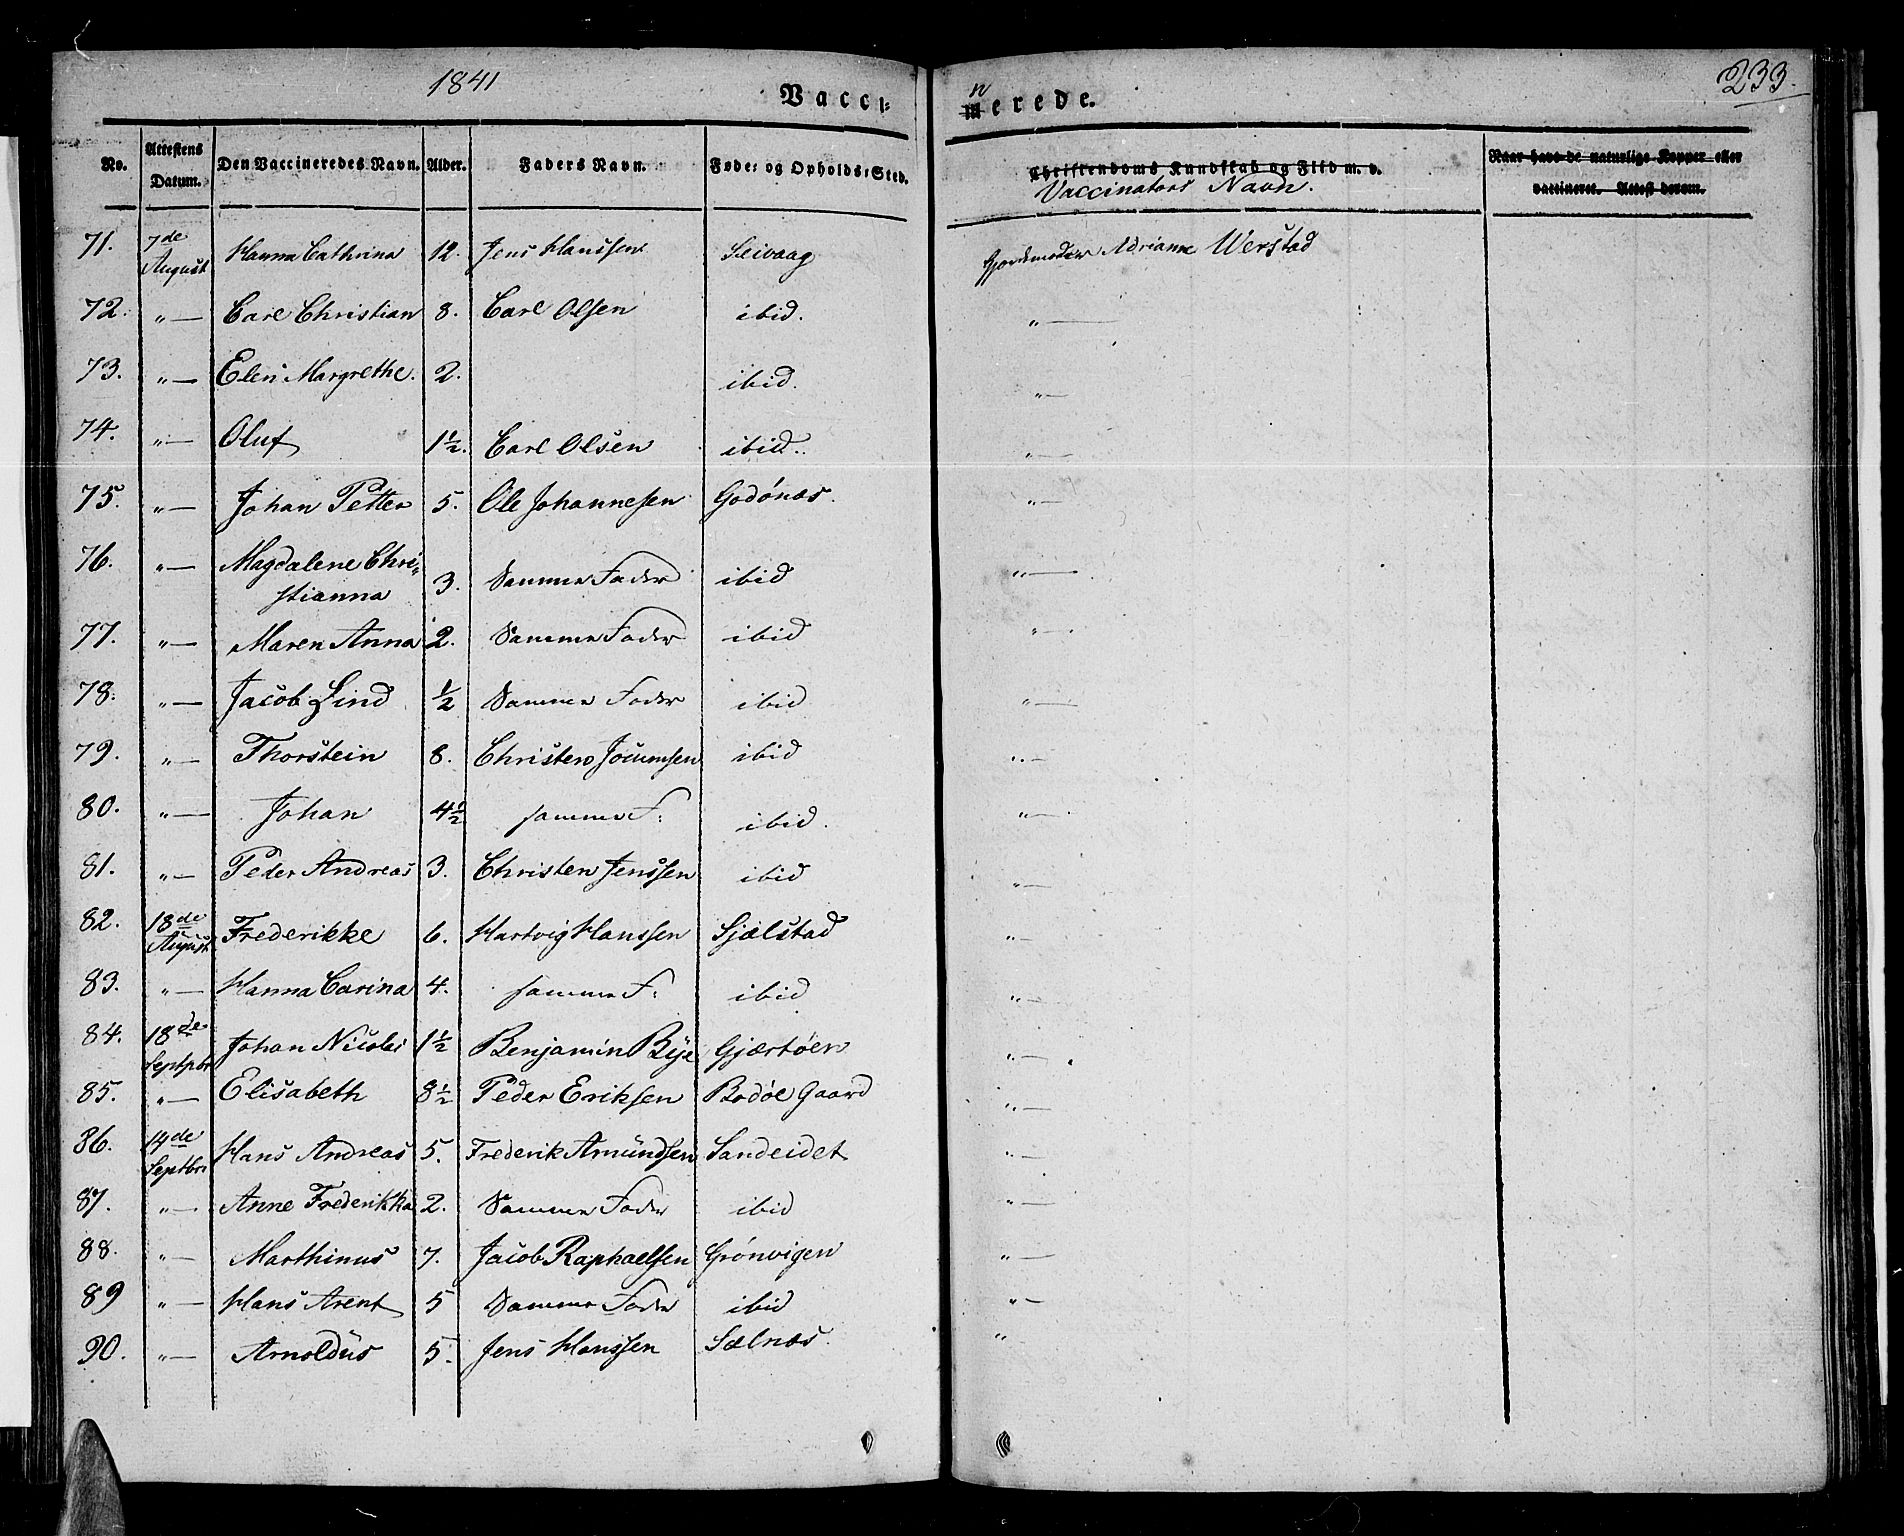 1841
Vacci-
nerede.
233.
No. Attestens Datum. Den Vaccineredes Navn. Alder. Faders Navn. Føde- og Opholds-Sted. Christendoms Kundskab og Flid m. v. Vaccinators Navn. Naar havt de naturlige Kopper eller vaccineret. Attest derom.
71. 7de August Hanna Cathrina 12. Jens Hanssen Seivaag Gjordemoder Adriane Werstad
72. "— Carl Christian 8. Carl Olsen ibid. "—
73. "— Elen Margrethe. 2. ibid. "—
74. "— Oluf 1½. Carl Olsen ibid. "—
75. "— Johan Petter 5. Ole Johannesen Godønæs. "—
76. "— Magdalene Chri-
stianna 3. Samme Fader ibid "—
77. "— Maren Anna 2. Samme Fader ibid "—
78. "— Jacob Lind ½ Samme Fader ibid "—
79. "— Thorstein 8. Christen Jocumsen ibid "—
80. "— Johan 4½ samme F: ibid. "—
81. "— Peder Andreas 3. Christen Jenssen ibid "—
82. 18de August Frederikke 6. Hartvig Hanssen Sjælstad "—
83. "— Hanna Carina 4. samme F: ibid "—
84. 18de Septbr Johan Nicolai 1½ Benjamin Bye Gjærtøen "—
85. "— Elisabeth 8½ Peder Eriksen Bodøe Gaard "—
86. 14de Septbr Hans Andreas 5. Frederik Amundsen Sandeidet "—
87. "— Anne Frederikka 2. Samme Fader ibid "—
88. "— Marthinus 7. Jacob Raphaelsen Grønvigen "—
89 "— Hans Arent 5 Samme Fader ibid "—
90. "— Arnoldus 5. Jens Hanssen Sælnæs. "